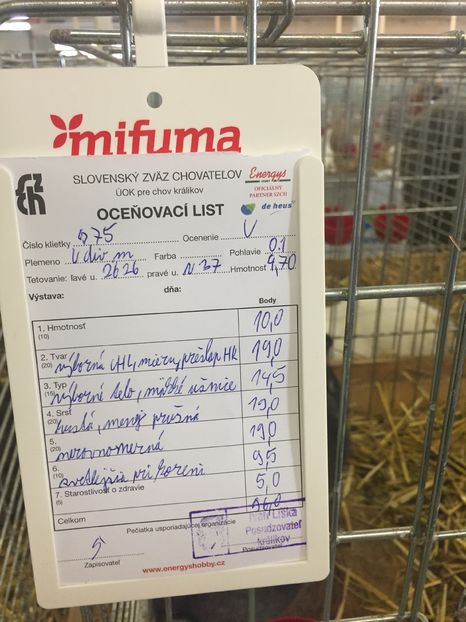 mifuma
SLOVENSKÝ ZVÄZ CHOVATEĽOV
ÚOK pre chov králikov
OCEŇOVACÍ LIST
Energys
OFICIÁLNY
PARTNER SZCH
de heus
Číslo klietky 575 Ocenenie V
Plemeno V div m Farba Pohlavie 0.1
Tetovanie: ľavé u. 2626 pravé u. N 37 Hmotnosť 4,70
Výstava: dňa:
Body
1. Hmotnosť (10) 10,0
2. Tvar (20) výborná 19,0
3. Typ (15) výborné telo, 14,5
4. Srsť (20) hustá, menej pružná 19,0
5. (20) nerovnomerná 19,0
6. (10) svetlejšia pri koreni 9,5
7. Starostlivosť o zdravie (5) 5,0
Celkom 96,0
Pečiatka usporiadajúcej organizácie
Líška
Posudzovateľ
králikov
Zapisovateľ Posudzovateľ
www.energyshobby.cz